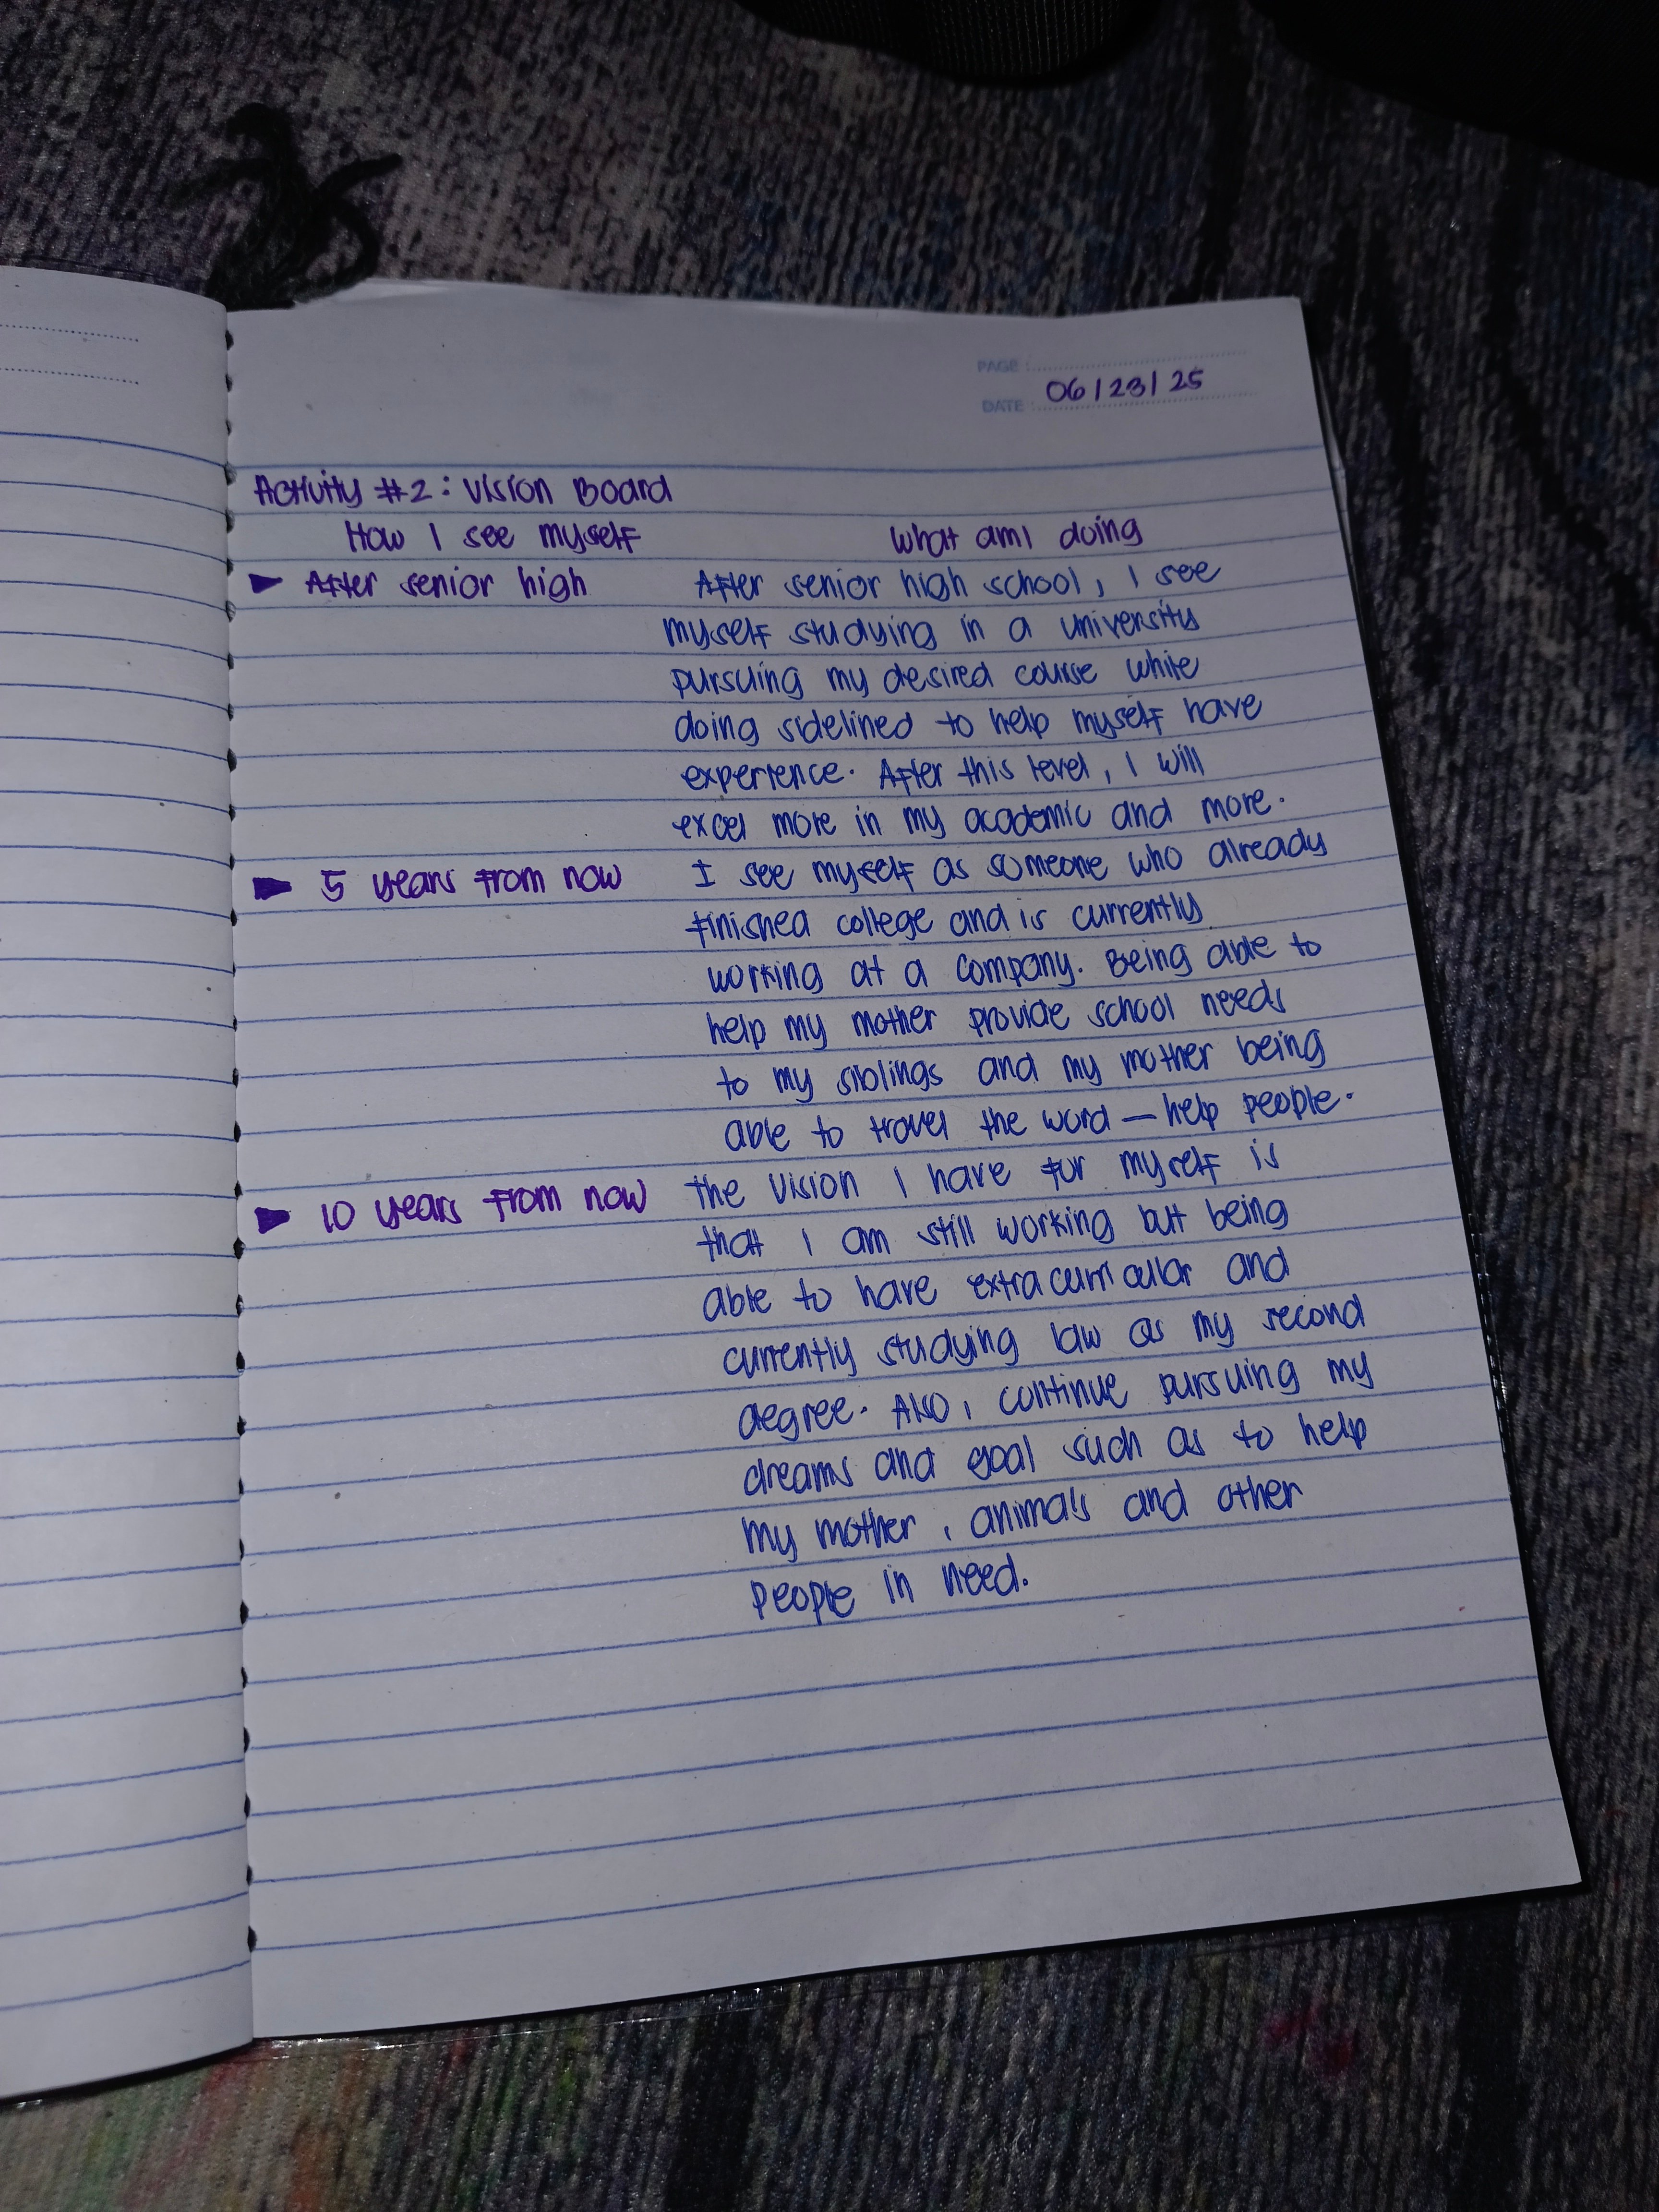 PAGE :
DATE : 06/23/25
Activity #2: Vision Board
How I see myself What am I doing
After senior high After senior high school, I see
myself studying in a university
pursuing my desired course while
doing sidelined to help myself have
experience. After this level, I will
excel more in my academic and more.
5 years from now I see myself as someone who already
finished college and is currently
working at a company. Being able to
help my mother provide school needs
to my siblings and my mother being
able to travel the word — help people.
10 years from now The vision I have for myself is
that I am still working but being
able to have extracurricular and
currently studying law as my second
degree. Also, continue pursuing my
dreams and goal such as to help
my mother, animals and other
people in need.